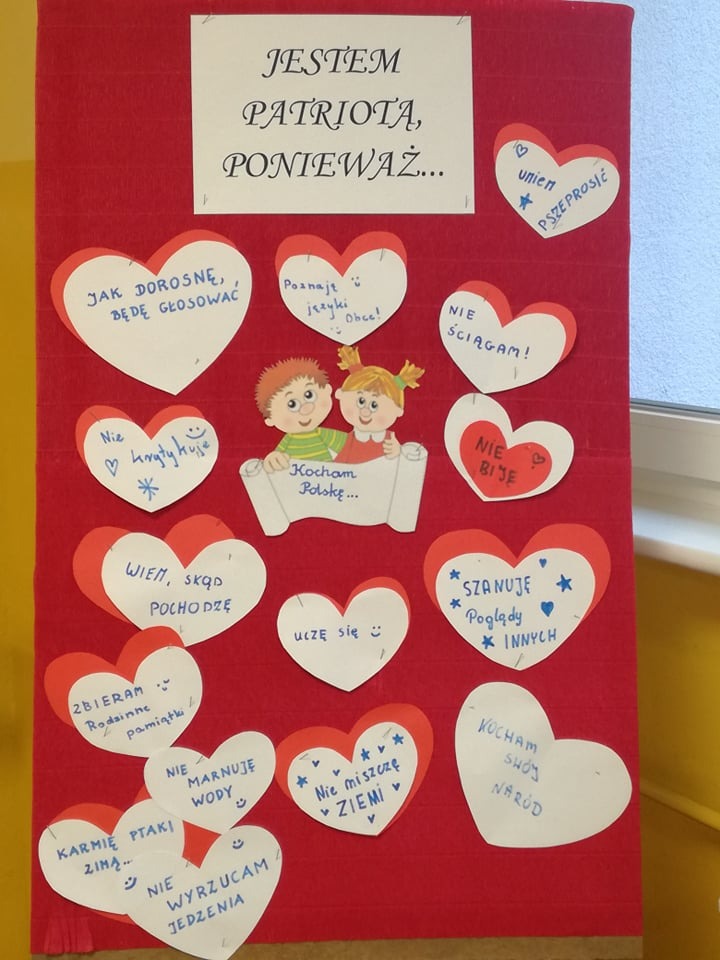 JESTEM
PATRIOTĄ,
PONIEWAŻ...
umiem
PSZEPROSIĆ
JAK DOROSNĘ,
BĘDĘ GŁOSOWAĆ
Poznaję
języki
Obce!
NIE
ŚCIĄGAM!
Nie
krytykuję
Kocham
Polskę...
NIE
BIJĘ
WIEM, SKĄD
POCHODZĘ
uczę się
SZANUJĘ
Poglądy
INNYCH
ZBIERAM
Rodzinne
pamiątki
NIE
MARNUJĘ
WODY
Nie niszczę
ZIEMI
KOCHAM
SWÓJ
NARÓD
KARMIĘ PTAKI
ZIMĄ...
NIE
WYRZUCAM
JEDZENIA